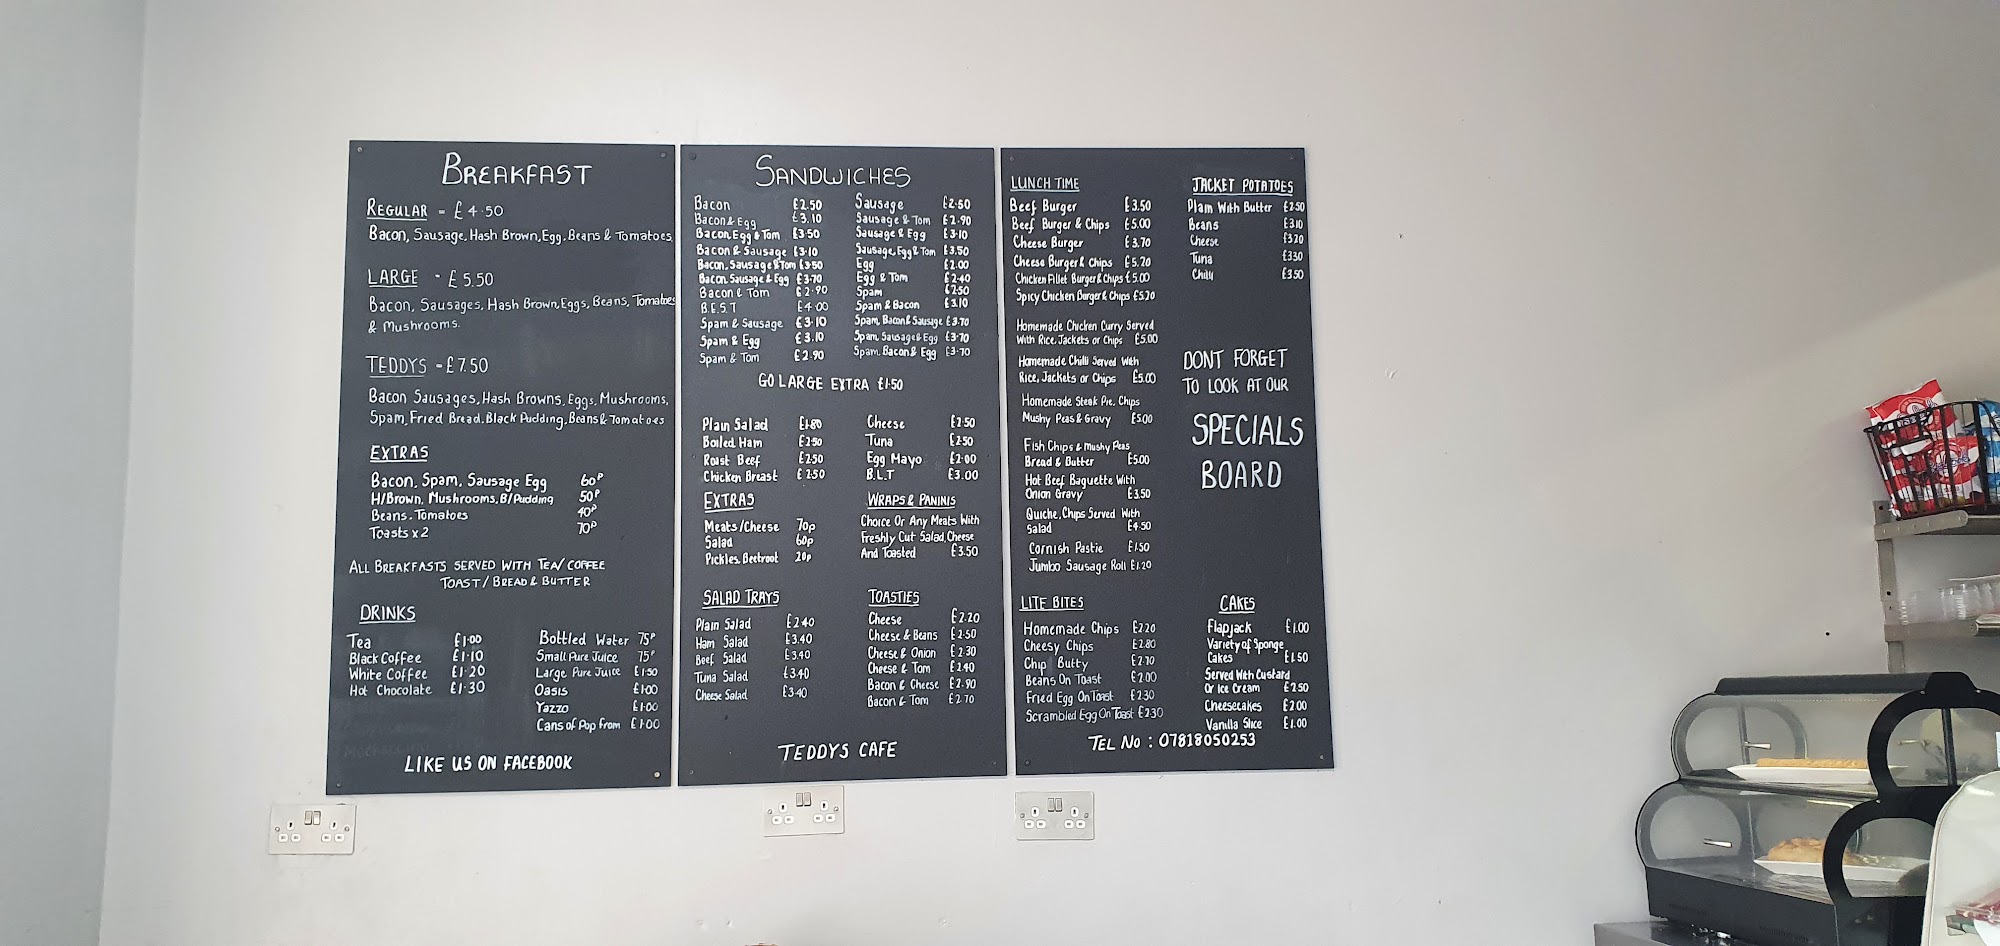 BREAKFAST
REGULAR - £4.50
Bacon, Sausage, Hash Brown, Egg, Beans & Tomatoes
LARGE - £5.50
Bacon, Sausages, Hash Brown, Eggs, Beans, Tomatoes
& Mushrooms.
TEDDYS - £7.50
Bacon Sausages, Hash Browns, Eggs, Mushrooms,
Spam, Fried Bread, Black Pudding, Beans & Tomatoes
EXTRAS
Bacon, Spam, Sausage Egg 60P
H/Brown, Mushrooms, B/Pudding 50P
Beans, Tomatoes 40P
Toasts x 2 70P
ALL BREAKFASTS SERVED WITH TEA/COFFEE
TOAST/BREAD & BUTTER
DRINKS
Tea £1.00
Black Coffee £1.10
White Coffee £1.20
Hot Chocolate £1.30
Bottled Water 75P
Small Pure Juice 75P
Large Pure Juice £1.50
Oasis £1.00
Yazzo £1.00
Cans of Pop from £1.00
LIKE US ON FACEBOOK
SANDWICHES
Bacon £2.50
Bacon & Egg £3.10
Bacon, Egg & Tom £3.50
Bacon & Sausage £3.10
Bacon, Sausage & Tom £3.50
Bacon, Sausage & Egg £3.70
Bacon & Tom £2.90
B.E.S.T £4.00
Spam & Sausage £3.10
Spam & Egg £3.10
Spam & Tom £2.90
Sausage £2.50
Sausage & Tom £2.90
Sausage & Egg £3.10
Sausage, Egg & Tom £3.50
Egg £2.00
Egg & Tom £2.40
Spam £2.50
Spam & Bacon £3.10
Spam, Bacon & Sausage £3.70
Spam, Sausage & Egg £3.70
Spam, Bacon & Egg £3.70
GO LARGE EXTRA £1.50
Plain Salad £1.80
Boiled Ham £2.50
Roast Beef £2.50
Chicken Breast £2.50
Cheese £2.50
Tuna £2.50
Egg Mayo £2.00
B.L.T £3.00
EXTRAS
Meats/Cheese 70p
Salad 60p
Pickles, Beetroot 20p
WRAPS & PANINIS
Choice Or Any Meats With
Freshly Cut Salad, Cheese
And Toasted £3.50
SALAD TRAYS
Plain Salad £2.40
Ham Salad £3.40
Beef Salad £3.40
Tuna Salad £3.40
Cheese Salad £3.40
TOASTIES
Cheese £2.20
Cheese & Beans £2.50
Cheese & Onion £2.30
Cheese & Tom £2.40
Bacon & Cheese £2.90
Bacon & Tom £2.70
TEDDYS CAFE
LUNCH TIME
Beef Burger £3.50
Beef Burger & Chips £5.00
Cheese Burger £3.70
Cheese Burger & Chips £5.20
Chicken Fillet Burger & Chips £5.00
Spicy Chicken Burger & Chips £5.20
Homemade Chicken Curry Served
With Rice, Jackets or Chips £5.00
Homemade Chilli Served With
Rice, Jackets or Chips £5.00
Homemade Steak Pie, Chips
Mushy Peas & Gravy £5.00
Fish Chips & Mushy Peas
Bread & Butter £5.00
Hot Beef Baguette With
Onion Gravy £3.50
Quiche, Chips Served With
Salad £4.50
Cornish Pastie £1.50
Jumbo Sausage Roll £1.20
JACKET POTATOES
Plain With Butter £2.50
Beans £3.10
Cheese £3.20
Tuna £3.30
Chilli £3.50
DONT FORGET
TO LOOK AT OUR
SPECIALS
BOARD
LITE BITES
Homemade Chips £2.20
Cheesy Chips £2.80
Chip Butty £2.70
Beans On Toast £2.00
Fried Egg On Toast £2.30
Scrambled Egg On Toast £2.30
CAKES
Flapjack £1.00
Variety of Sponge
Cakes £1.50
Served With Custard
Or Ice Cream £2.50
Cheesecakes £2.00
Vanilla Slice £1.00
TEL NO : 07818050253